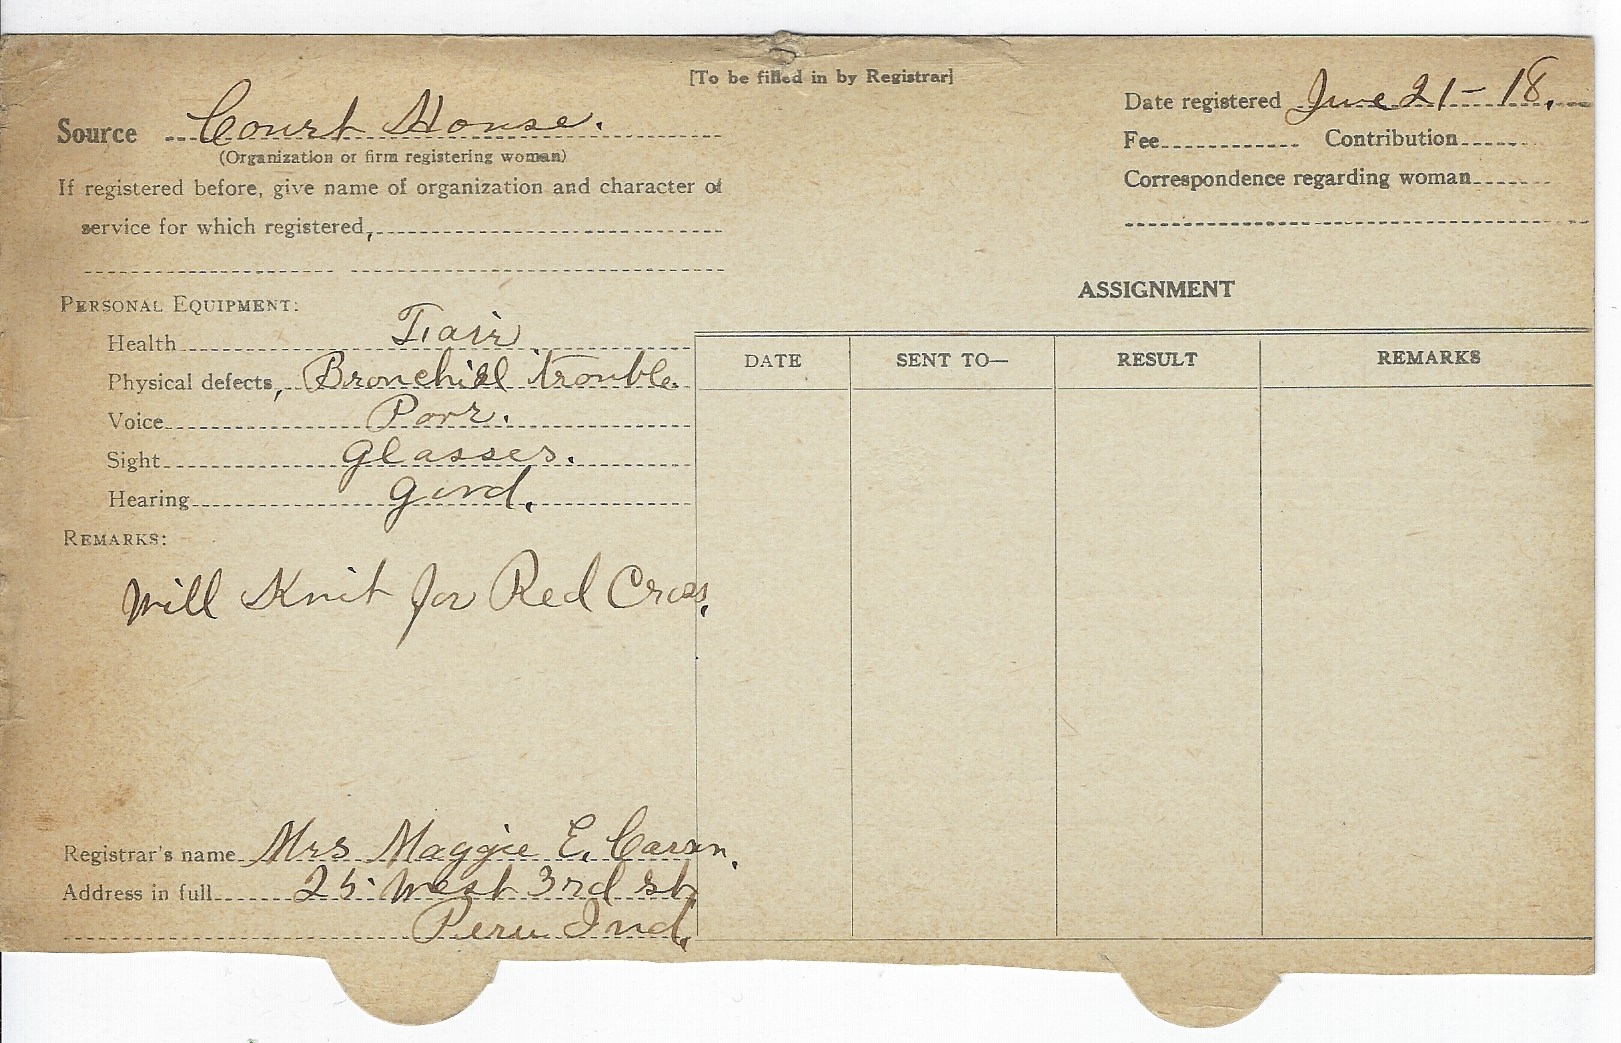 [To be filled in by Registrar]
Source Court House.
(Organization or firm registering woman)
If registered before, give name of organization and character of
service for which registered,
Date registered June 21-18.
Fee Contribution
Correspondence regarding woman
PERSONAL EQUIPMENT:
Health Fair
Physical defects, Bronchial trouble.
Voice Poor.
Sight Glasses.
Hearing good.
REMARKS:
Will Knit for Red Cross.
Registrar's name Mrs Maggie E.
Address in full 25 West 3rd St
Peru Ind.
ASSIGNMENT
DATE SENT TO— RESULT REMARKS